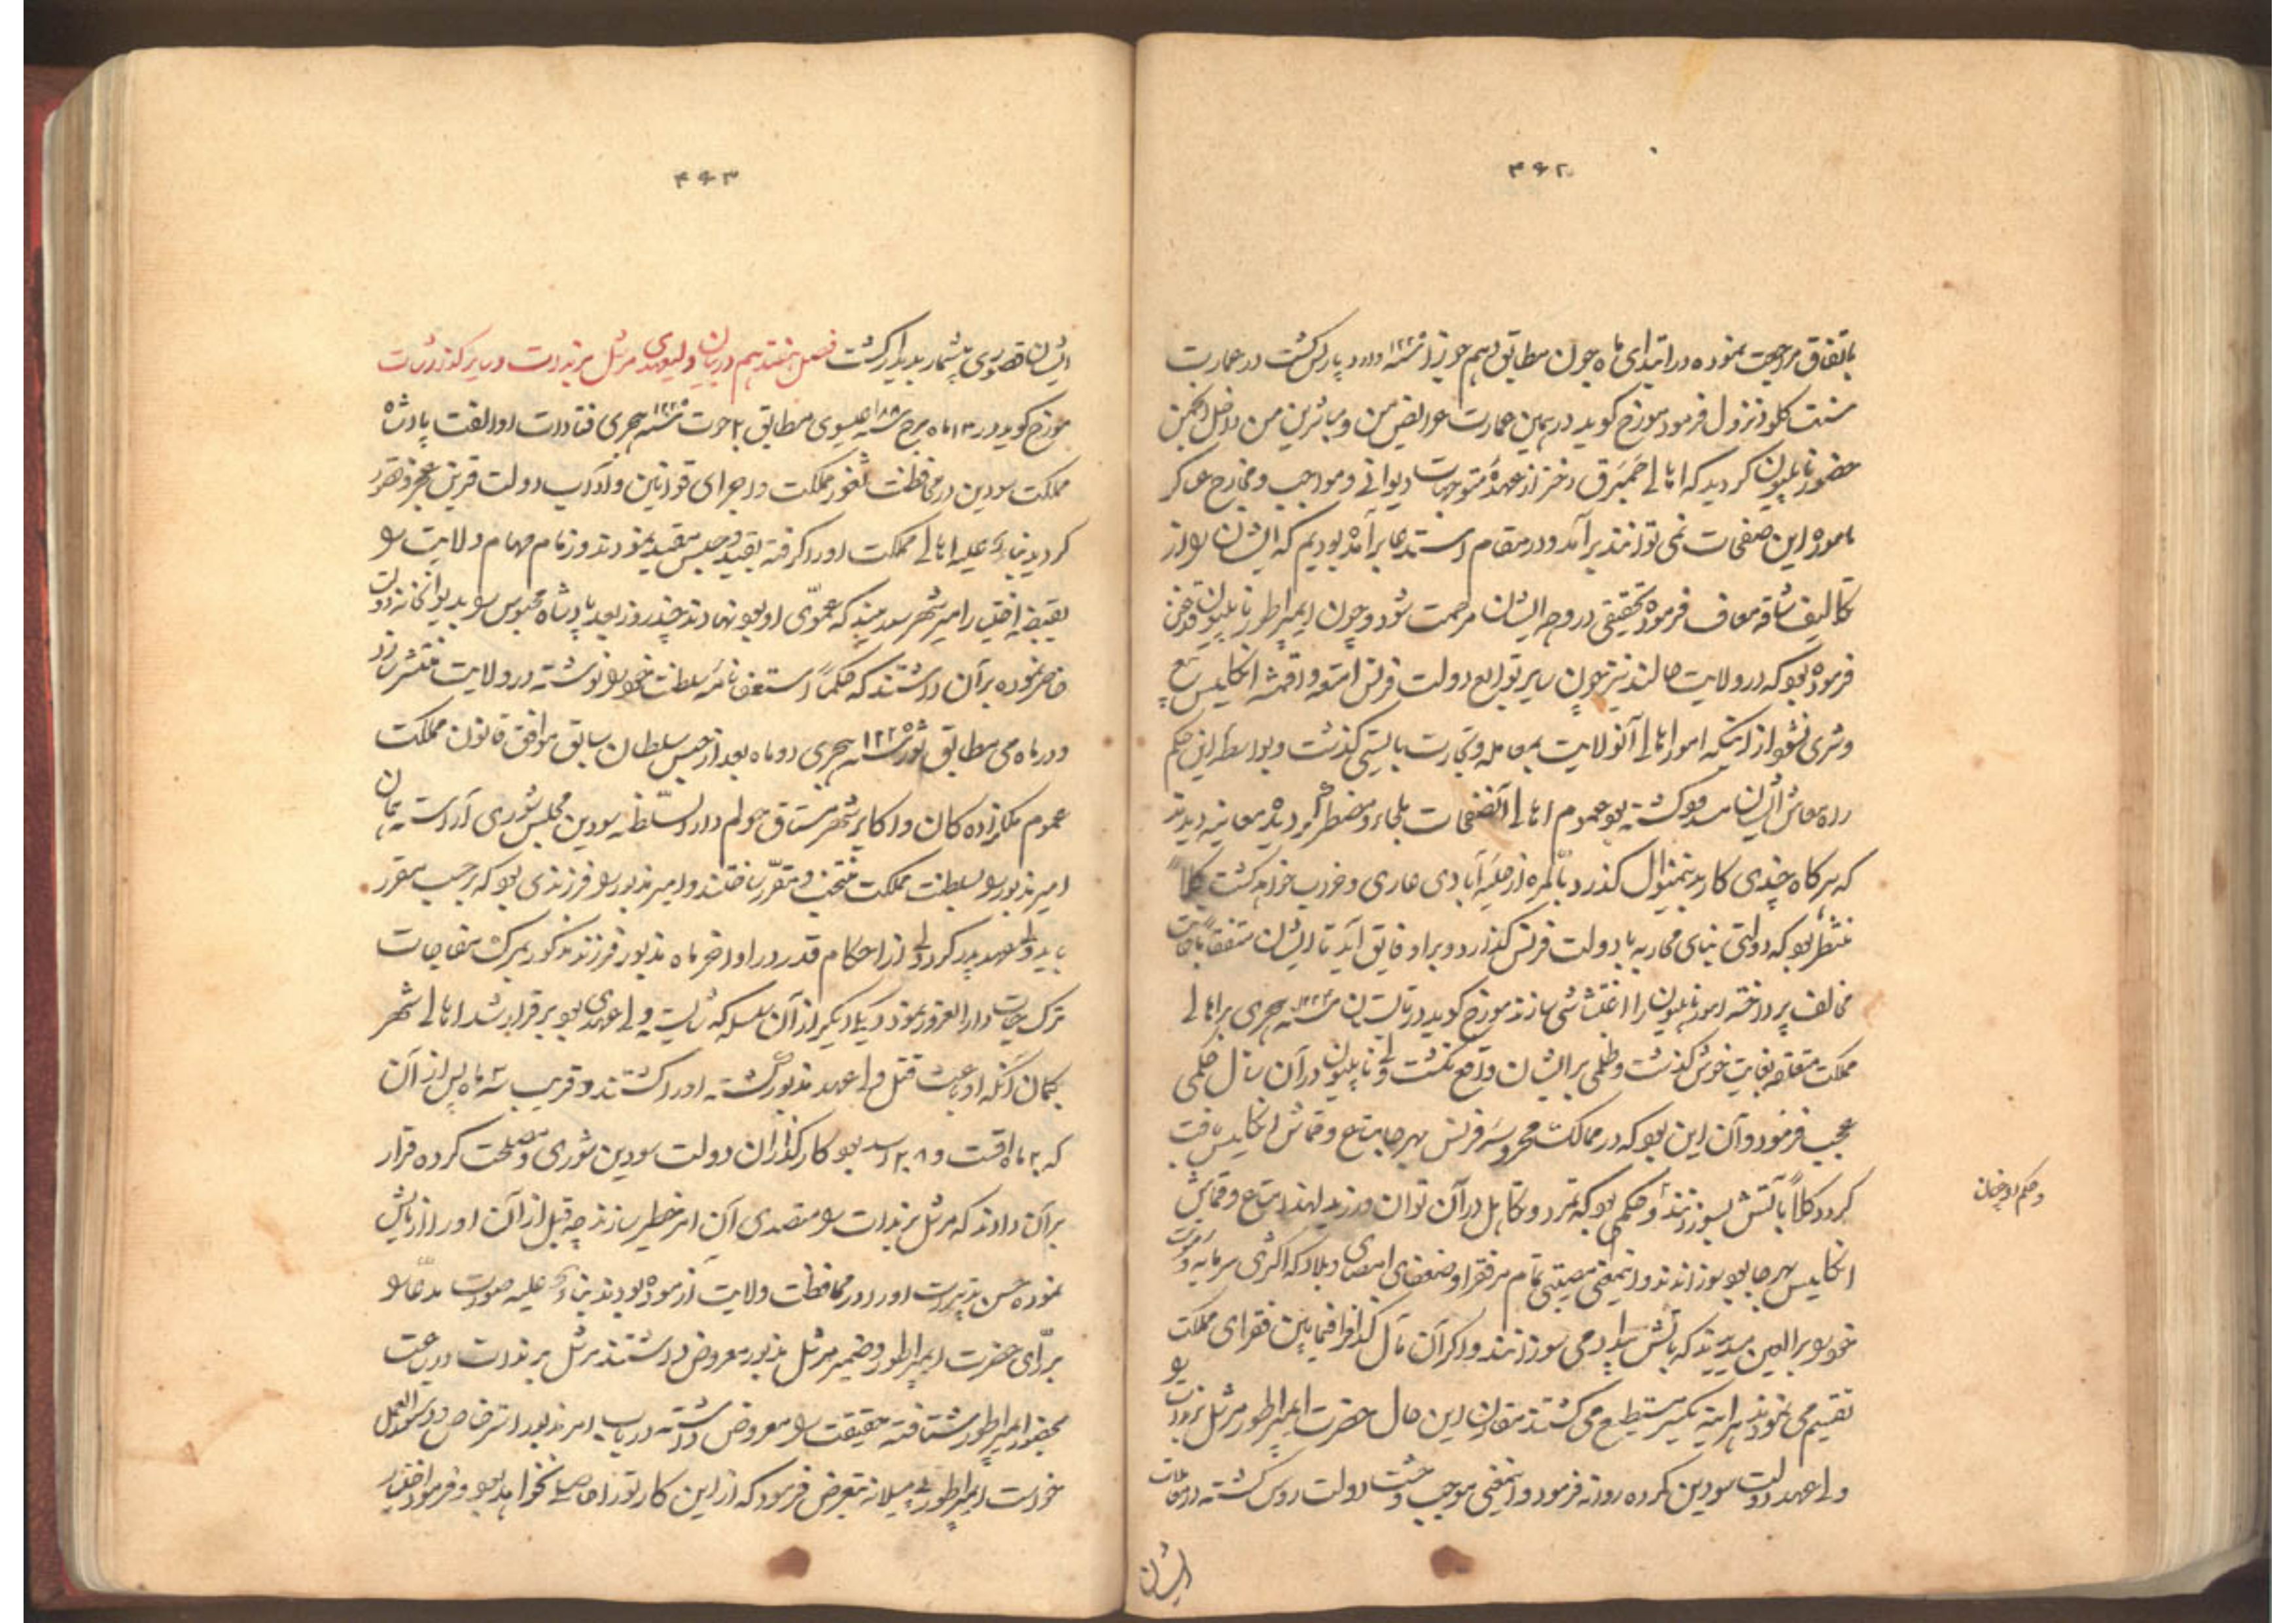 ۴۶۲
باتفاق مراجعت نموده در ابتدای ماه جون مطابق دهم جوزا سنه ۱۲۲۵ وارد پارس گشت در عمارت
سنت کلود نزول فرمود مورخ گوید در همین عمارت عرایض من و مباشرین من داخل انجمن
حضور ناپلیون گردید که اهالی از عهدهٔ متوجهات دیوانی و مواجب و مخارج عساکر
ماموره این صفحات نمی توانند برآمد و در مقام استدعا برآمده بودیم که ایشان را از
تکالیف شاقه معاف فرموده تخفیفی در وجه ایشان مرحمت شود و چون ایمپراطور ناپلیون قدغن
فرموده بود که در ولایت هالند نیز چون سایر توابع دولت فرنس امتعه و اقمشه انگلیس بیع
و شری نشود از اینکه امور اهالی آنولایت بمعامله و تجارت بایستی گذشت و بواسطه این حکم
راه معاش ایشان مسدود گشته بود عموم اهالی آنصفحات ملجاء و مضطر گردیده معاینه دیدند
که هرگاه چندی کار بدینمنوال گذرد بالمره از حلیهٔ آبادی عاری و خراب خواهد گشت کلاً
منتظر بود که دولتی بنای محاربه با دولت فرنس گذارد و بر او فایق آید تا ایشان متفقاً با
مخالف پرداخته امور ناپلیون را اغتشاشی سازند مورخ گوید در تابستان سنه ۱۲۲۴ هجری بر اهالی
مملکت بغایت خوش گذشت و ظلمی بر ایشان واقع نگشت ولی ناپلیون در آن سال حکمی
عجیب فرمود و آن این بود که در ممالک محروسهٔ فرنس بهر جا متاع و قماش انگلیس یافت
گردد کلاً بآتش بسوزانند و حکمی بود که تمرد و تکاهل در آن توان ورزید لهذا متاع و قماش
و حکم او چنان
انگلیس بهر جا بود سوزاندند و اینمعنی مصیبتی تمام بر فقرا و ضعفای امصار و بلاد که اکثری سرمایه و
خود را برأی العین میدیدند که بآتش بیداد می سوزانند و اگر آن مال گزاف را فیمابین فقرای مملکت
تقسیم می نمودند هر آینه یکسر مستطیع می گشتند مقارن این حال حضرت ایمپراطور مرشل برندات را
ولی عهد دولت سودین کرده روانه فرمود و اینمعنی موجب وحشت دولت روس گشته در معاملات
ایشان
۴۶۳
ایشان قصوری بیشمار پدیدار گشت فصل هفتدهم در بیان ولیعهدی مرشل برندات و سایر گذارشات
مورخ گوید در ۱۳ ماه مرچ سنه عیسوی مطابق ۲ حوت سنه ۱۲۲۵ هجری پادشاه
مملکت سودین در محافظت ثغور مملکت و اجرای قوانین و آداب دولت قرین عجز و قصور
گردید بناءً علیه اهالی مملکت او را گرفته بقید و حبس مقید نمودند و زمام مهام ولایت را
بقبضهٔ اختیار امیر شهر که عموی او بود نهادند چند روز بعد پادشاه محبوس را بدیوانخانه دولت
حاضر نموده بر آن داشتند که حکماً استعفا نامه سلطنت خود را نوشته در ولایت منتشر سازد
و در ماه می مطابق ثور سنه ۱۲۲۵ هجری دو ماه بعد از حبس سلطان سابق موافق قانون مملکت
عموم ملکزاده کان و اکابر شهر ستاق هولم دارالسلطنه سودین مجلس شوری آراسته همان
امیر مذبور را بسلطنت مملکت منتخب و مقرر ساختند و امیر مذبور را فرزندی بود که بر حسب مقرر
باید ولیعهد پدر گردد ولی از احکام قدر در اواخر ماه مذبور فرزند مذکور بمرگ مفاجات
ترک حیات دار الغرور نمود و یکی دیگر از آن سلسله که شایسته ولی عهدی بود برقرار شد اهالی شهر
بگمان آنکه او باعث قتل ولی عهد مذبور گشته او را کشتند و قریب سه ماه پس از آن
که ۲ ماه اقست و ۲۸ اسد بود کارگذاران دولت سودین شوری و مصلحت کرده قرار
بر آن دادند که مرشل برندات را متصدی آن امر خطیر سازند چه قبل از آن او را آزمایش
نموده حسن تدبیرات او را در محافظت ولایت آزموده بودند بناءً علیه صورت مدعا را
برای حضرت ایمپراطور و ضمیر مرشل مذبور معروض داشتند مرشل برندات در ساعت
بحضور ایمپراطور شتافته حقیقت را معروض داشته در باب امر مذبور استرخاص و دستورالعمل
خواست ایمپراطور بی میلانه متعرض فرمود که از این کار تو را حاصلی نخواهد بود و فرمود اختیار